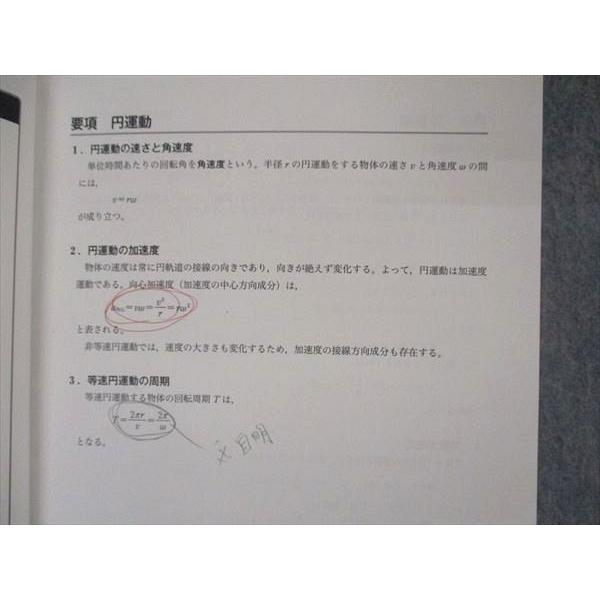 要項 円運動
1．円運動の速さと角速度
単位時間あたりの回転角を角速度という。半径 r の円運動をする物体の速さ v と角速度 ω の間
には，
v=rω
が成り立つ。
2．円運動の加速度
物体の速度は常に円軌道の接線の向きであり，向きが絶えず変化する。よって，円運動は加速度
運動である。向心加速度（加速度の中心方向成分）は，
=vω=v²/r=rω²
と表される。
非等速円運動では，速度の大きさも変化するため，加速度の接線方向成分も存在する。
3．等速円運動の周期
等速円運動する物体の回転周期 T は，
T=2πr/v=2π/ω
となる。
自明